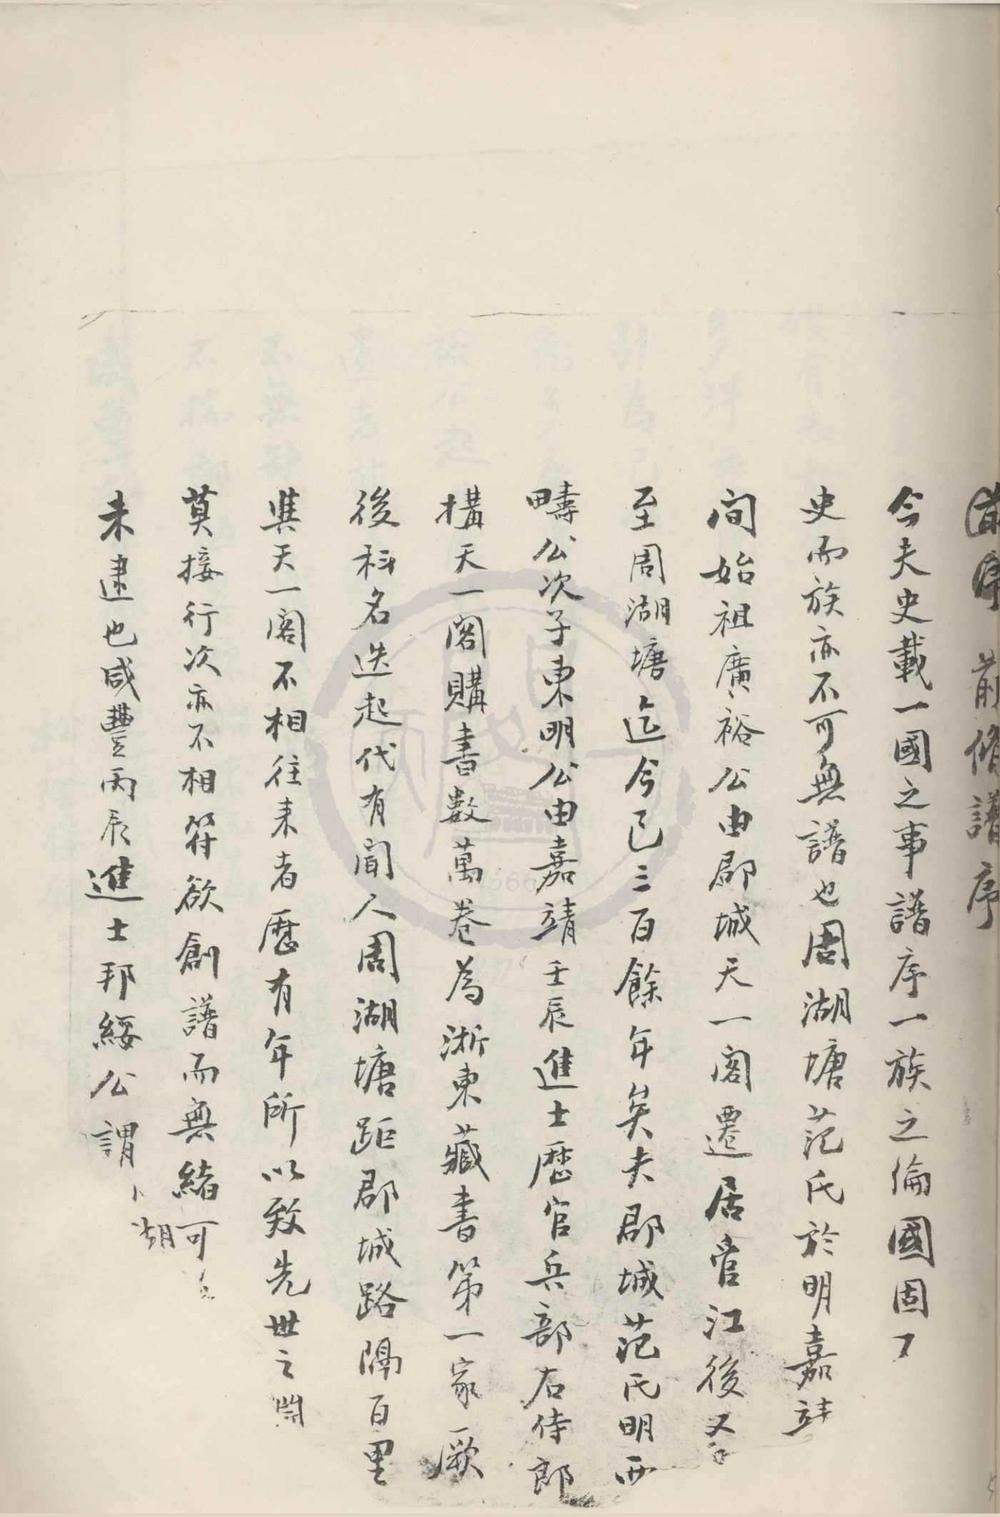 前修譜序
今夫史載一國之事譜序一族之倫國固
史而族亦不可無譜也周湖塘范氏於明嘉靖
间始祖廣裕公由郡城天一阁遷居管江後又
至周湖塘迄今已三百餘年矣夫郡城范氏明西
疇公次子東明公由嘉靖壬辰進士歷官兵部右侍郎
構天一阁購書數萬卷為浙東藏書第一家厥
後科名迭起代有聞人周湖塘距郡城路隔百里
與天一阁不相往来者歷有年所以致先世之
莫接行次亦不相符欲創譜而無緒可
未逮也咸豐丙辰進士邦綏公謂
湖